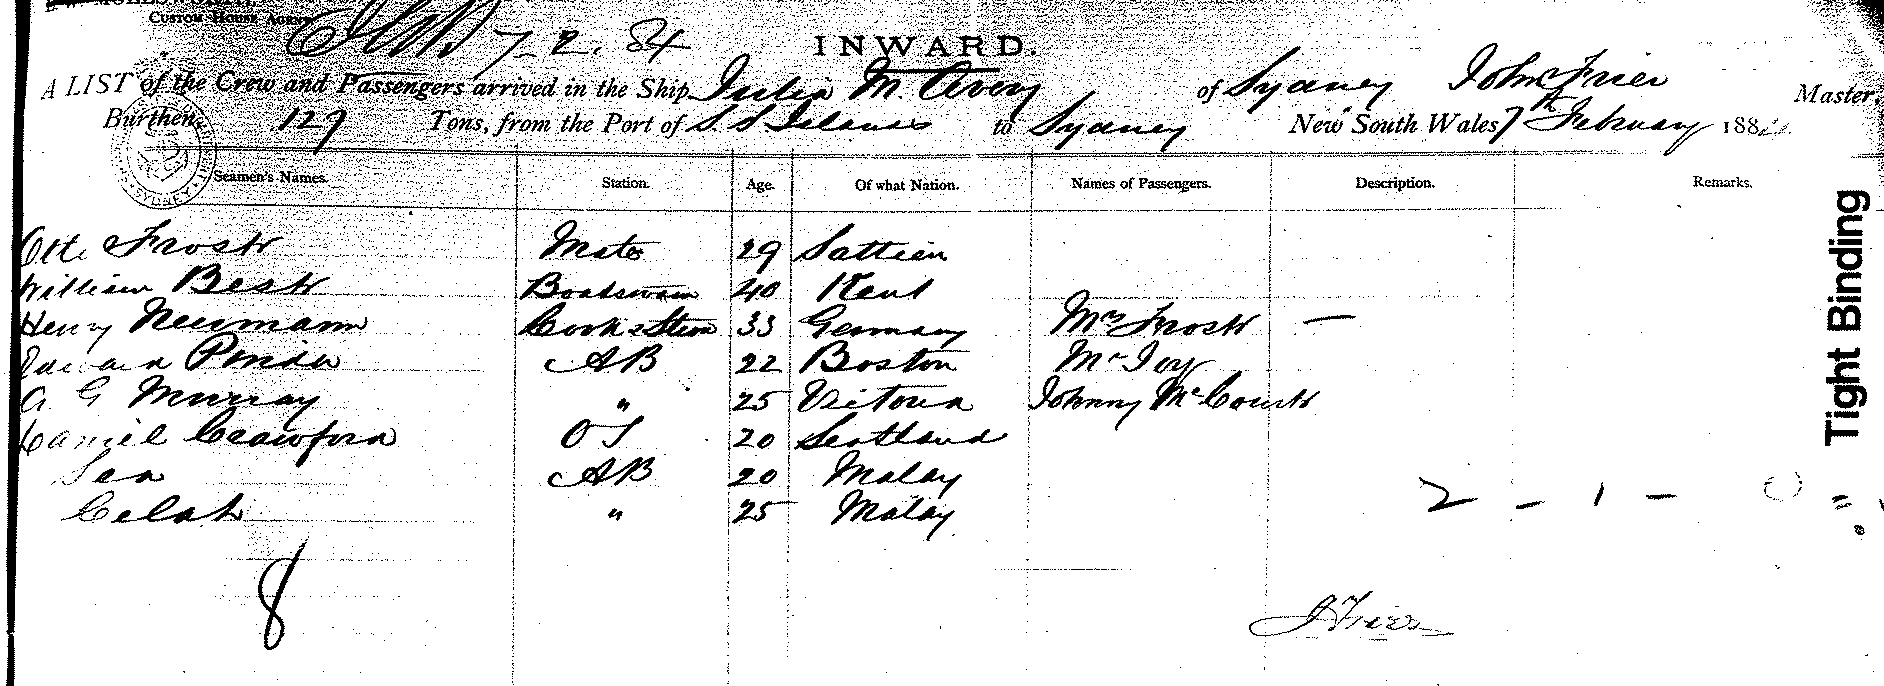 CUSTOM HOUSE AGENT
7. 2. 84
INWARD.
A LIST of the Crew and Passengers arrived in the Ship Julia M. Avery of Sydney John Frier Master,
Burthen 129 Tons, from the Port of S. S Islands to Sydney New South Wales 7th February 1884
Seamen's Names. Station. Age. Of what Nation. Names of Passengers. Description. Remarks.
Otto Frost Mate 29 Stettin
William Best Boatswain 40 Kent
Henry Neumann Cook & Stew 33 Germany Mrs Frost —
Edward AB 22 Boston Mr Joy
A G Murray " 25 Victoria Johnny McCourt
Daniel Crawford OS 20 Scotland
Sea AB 20 Malay
Celah " 25 Malay
2 - 1 - 0 =
8
J Frier
Tight Binding